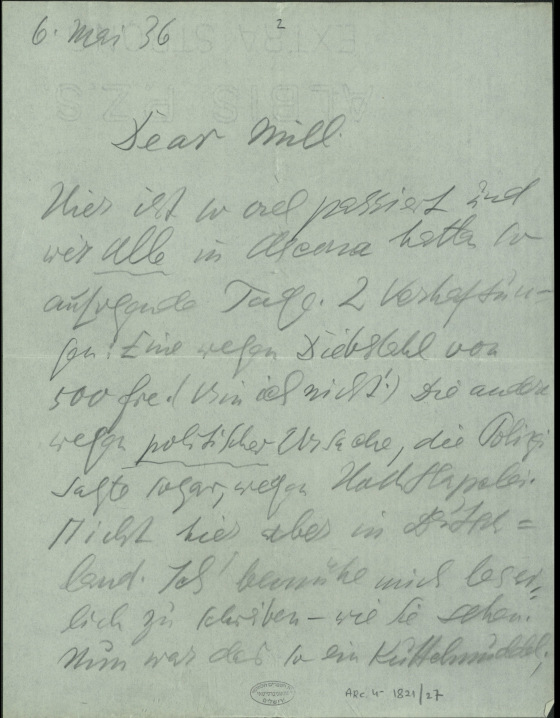 6. Mai 36
2
EXTRA STRONG
ALBIS P.Z.S.
Dear Mill.
Hier ist so viel passiert und
wir alle in Ascona hatten so
aufregende Tage. 2 Verhaftun-
gen! Eine wegen Diebstahl von
500 frc. (bin ich nicht!) Die andere
wegen politischer Ursache, die Polizei
sagte sogar, wegen Hochstapelei.
Nicht hier aber in Deutsch=
land. Ich bemühe mich leser-
lich zu schreiben – wie Sie sehen.
Nun war das so ein Kuddelmuddel,
ARC. 4° 1821/27